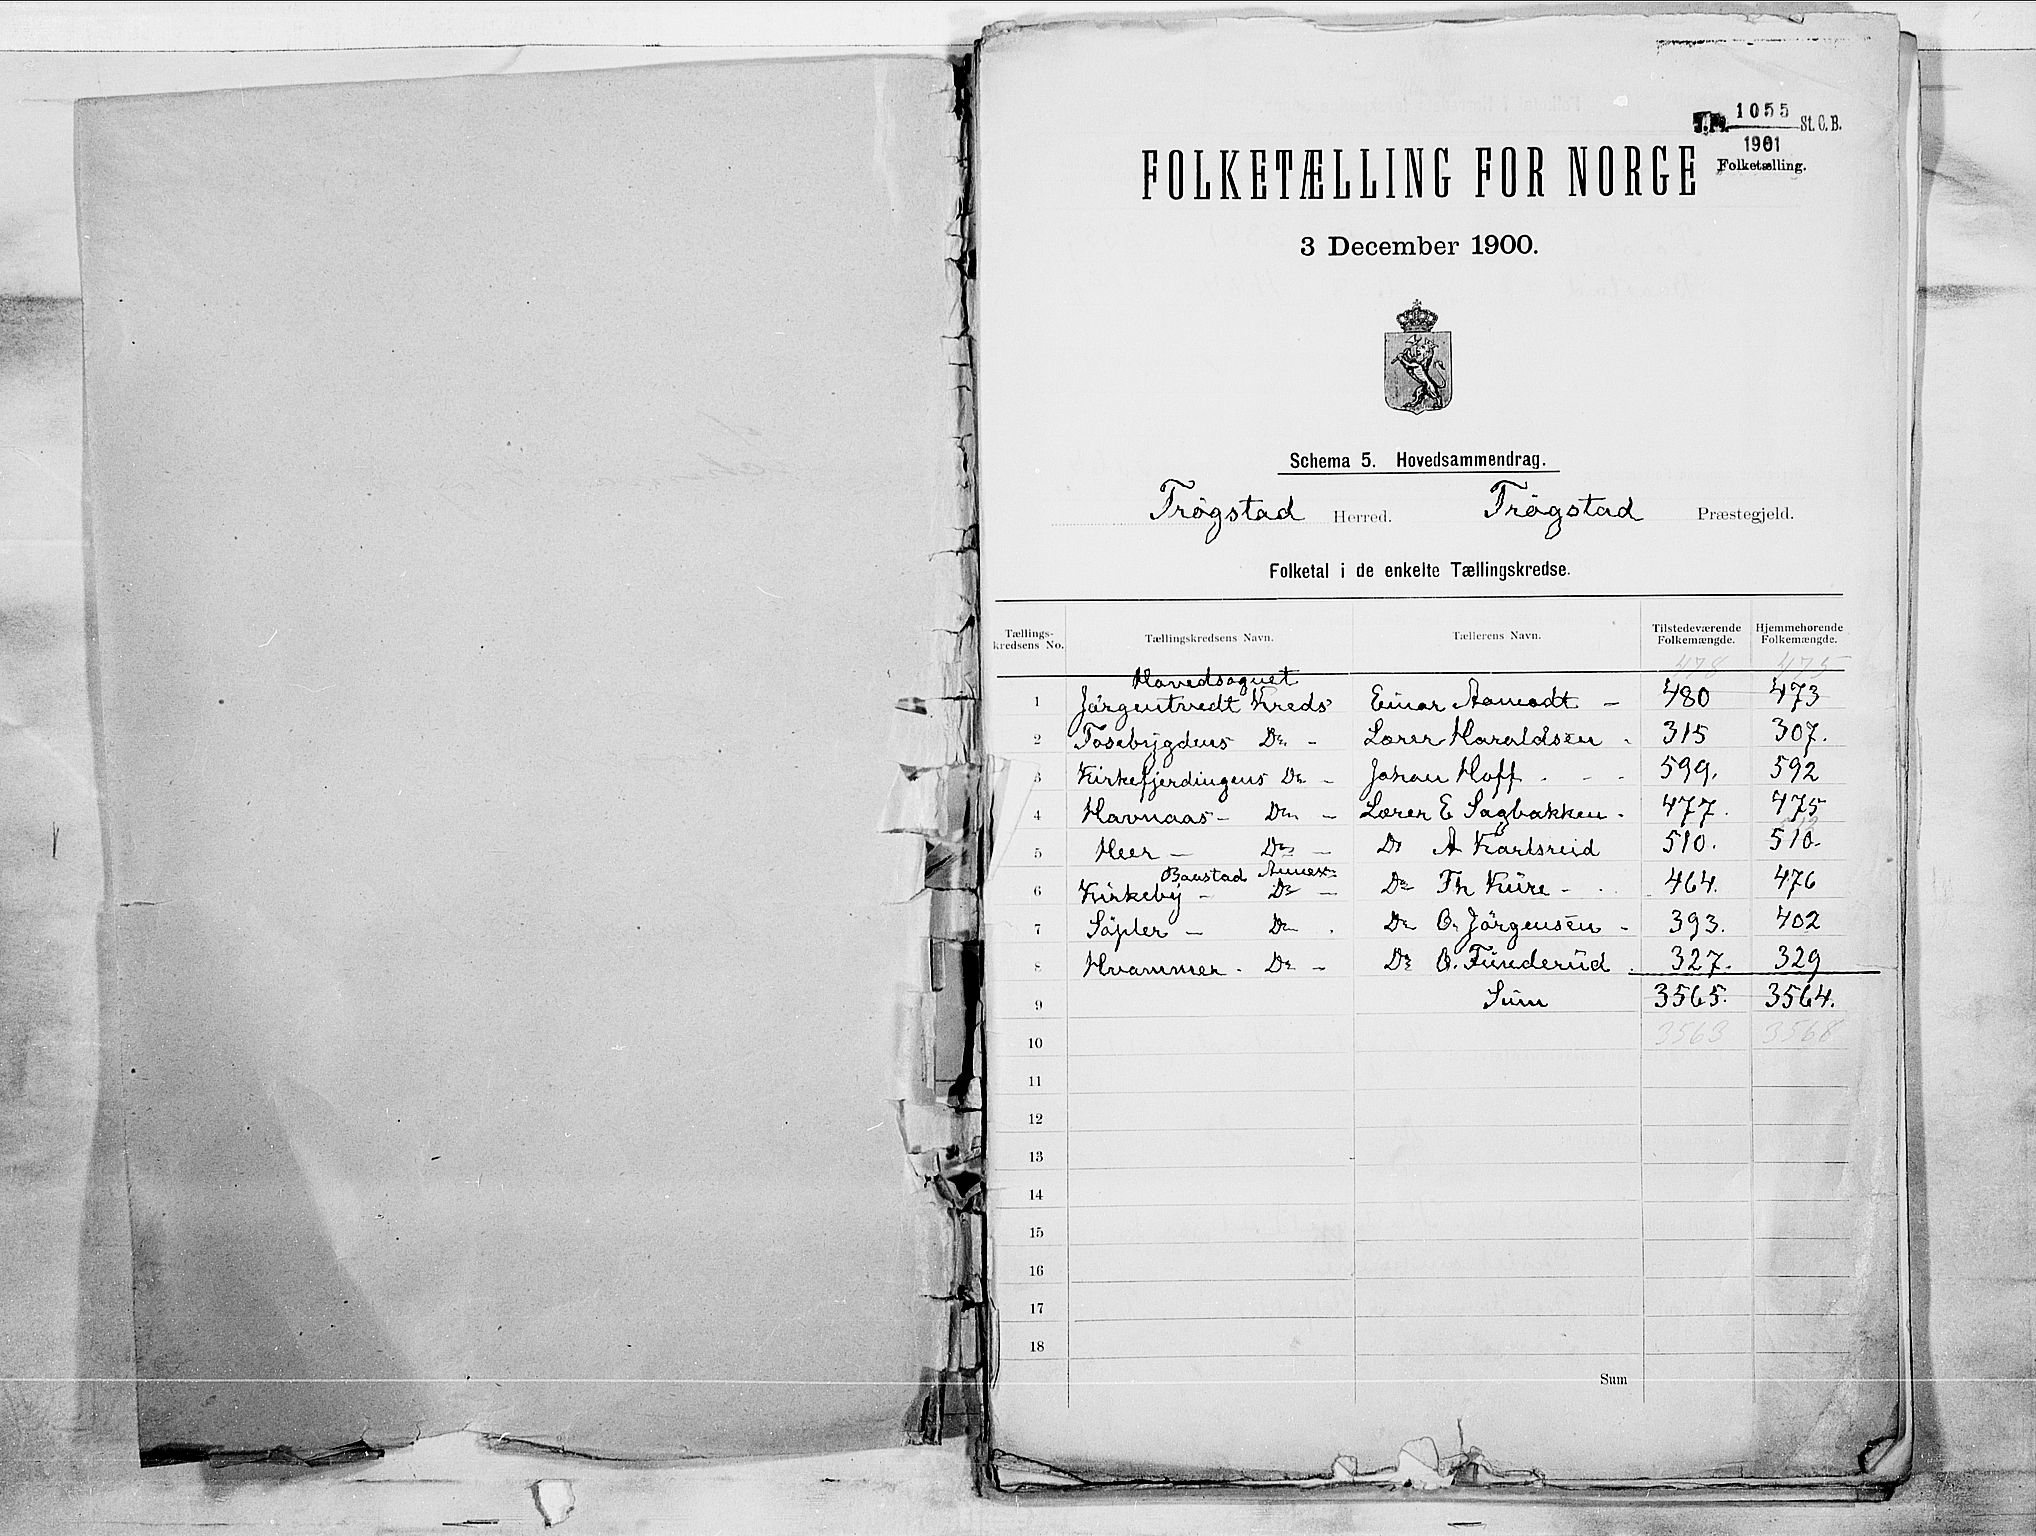 J.No. 1055 St. C. B.
1901
Folketælling.
FOLKETÆLLING FOR NORGE
3 December 1900.
Schema 5. Hovedsammendrag.
Trøgstad Herred. Trøgstad Præstegjeld.
Folketal i de enkelte Tællingskredse.
Tællings-kredsens No. Tællingskredsens Navn. Tællerens Navn. Tilstedeværende Folkemængde. Hjemmehørende Folkemængde.
478 475
Hovedsognet
1 Jörgentvedt Kreds Einar Aamodt - 480 473
2 Tosebygdens Do - Lærer Haraldsen - 315 307.
3 Kirkefjerdingens Do - Johan Hoff - - - 599. 592
4 Havnaas - Do - Lærer E Sagbakken - 477. 475
5 Heer - Do - Do A Karlsreid 510. 510.
Baastad Annex
6 Kirkeby - Do - Do Th Kure - - 464. 476
7 Söpler - Do - Do O. Jörgensen - 393. 402
8 Hvammer - Do - Do O. Funderud - 327. 329
9 Sum 3565. 3564.
10 3563 3568
11
12
13
14
15
16
17
18
Sum